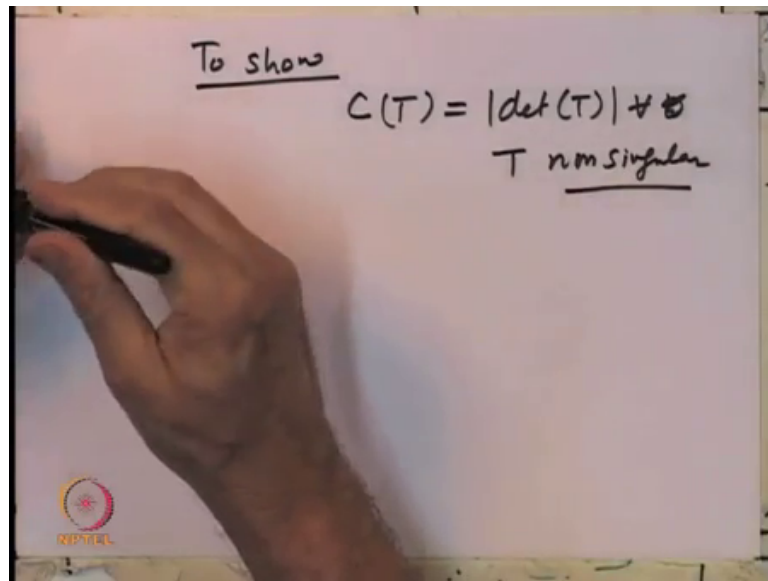 To show
C(T) = |det(T)| ∀
T nonsingular
NPTEL